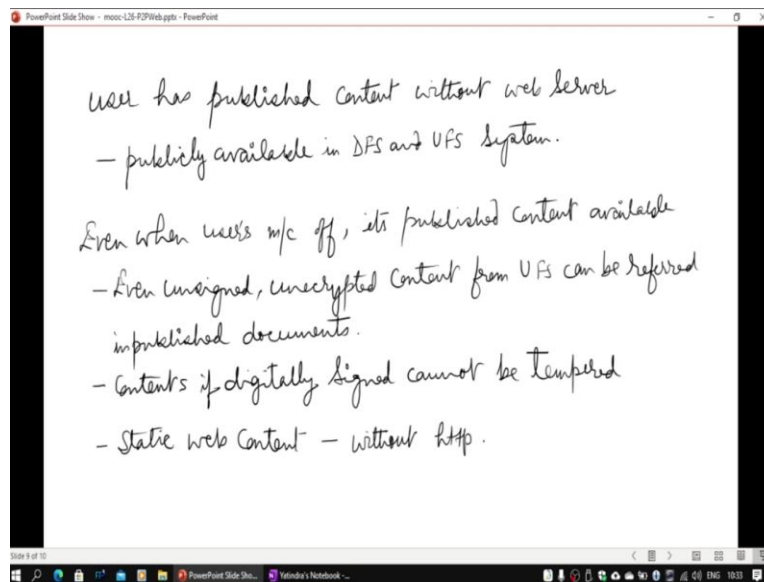 PowerPoint Slide Show - mooc-L26-P2PWeb.pptx - PowerPoint
user has published content without web server
- publicly available in DFS and UFS system.
Even when user's m/c off, its published content available
- Even unsigned, unecrypted content from UFS can be referred
in published documents.
- Contents if digitally signed cannot be tempered
- Static web content - without http.
Slide 9 of 10
PowerPoint Slide Sho... Yatindra's Notebook -... ENG 10:33